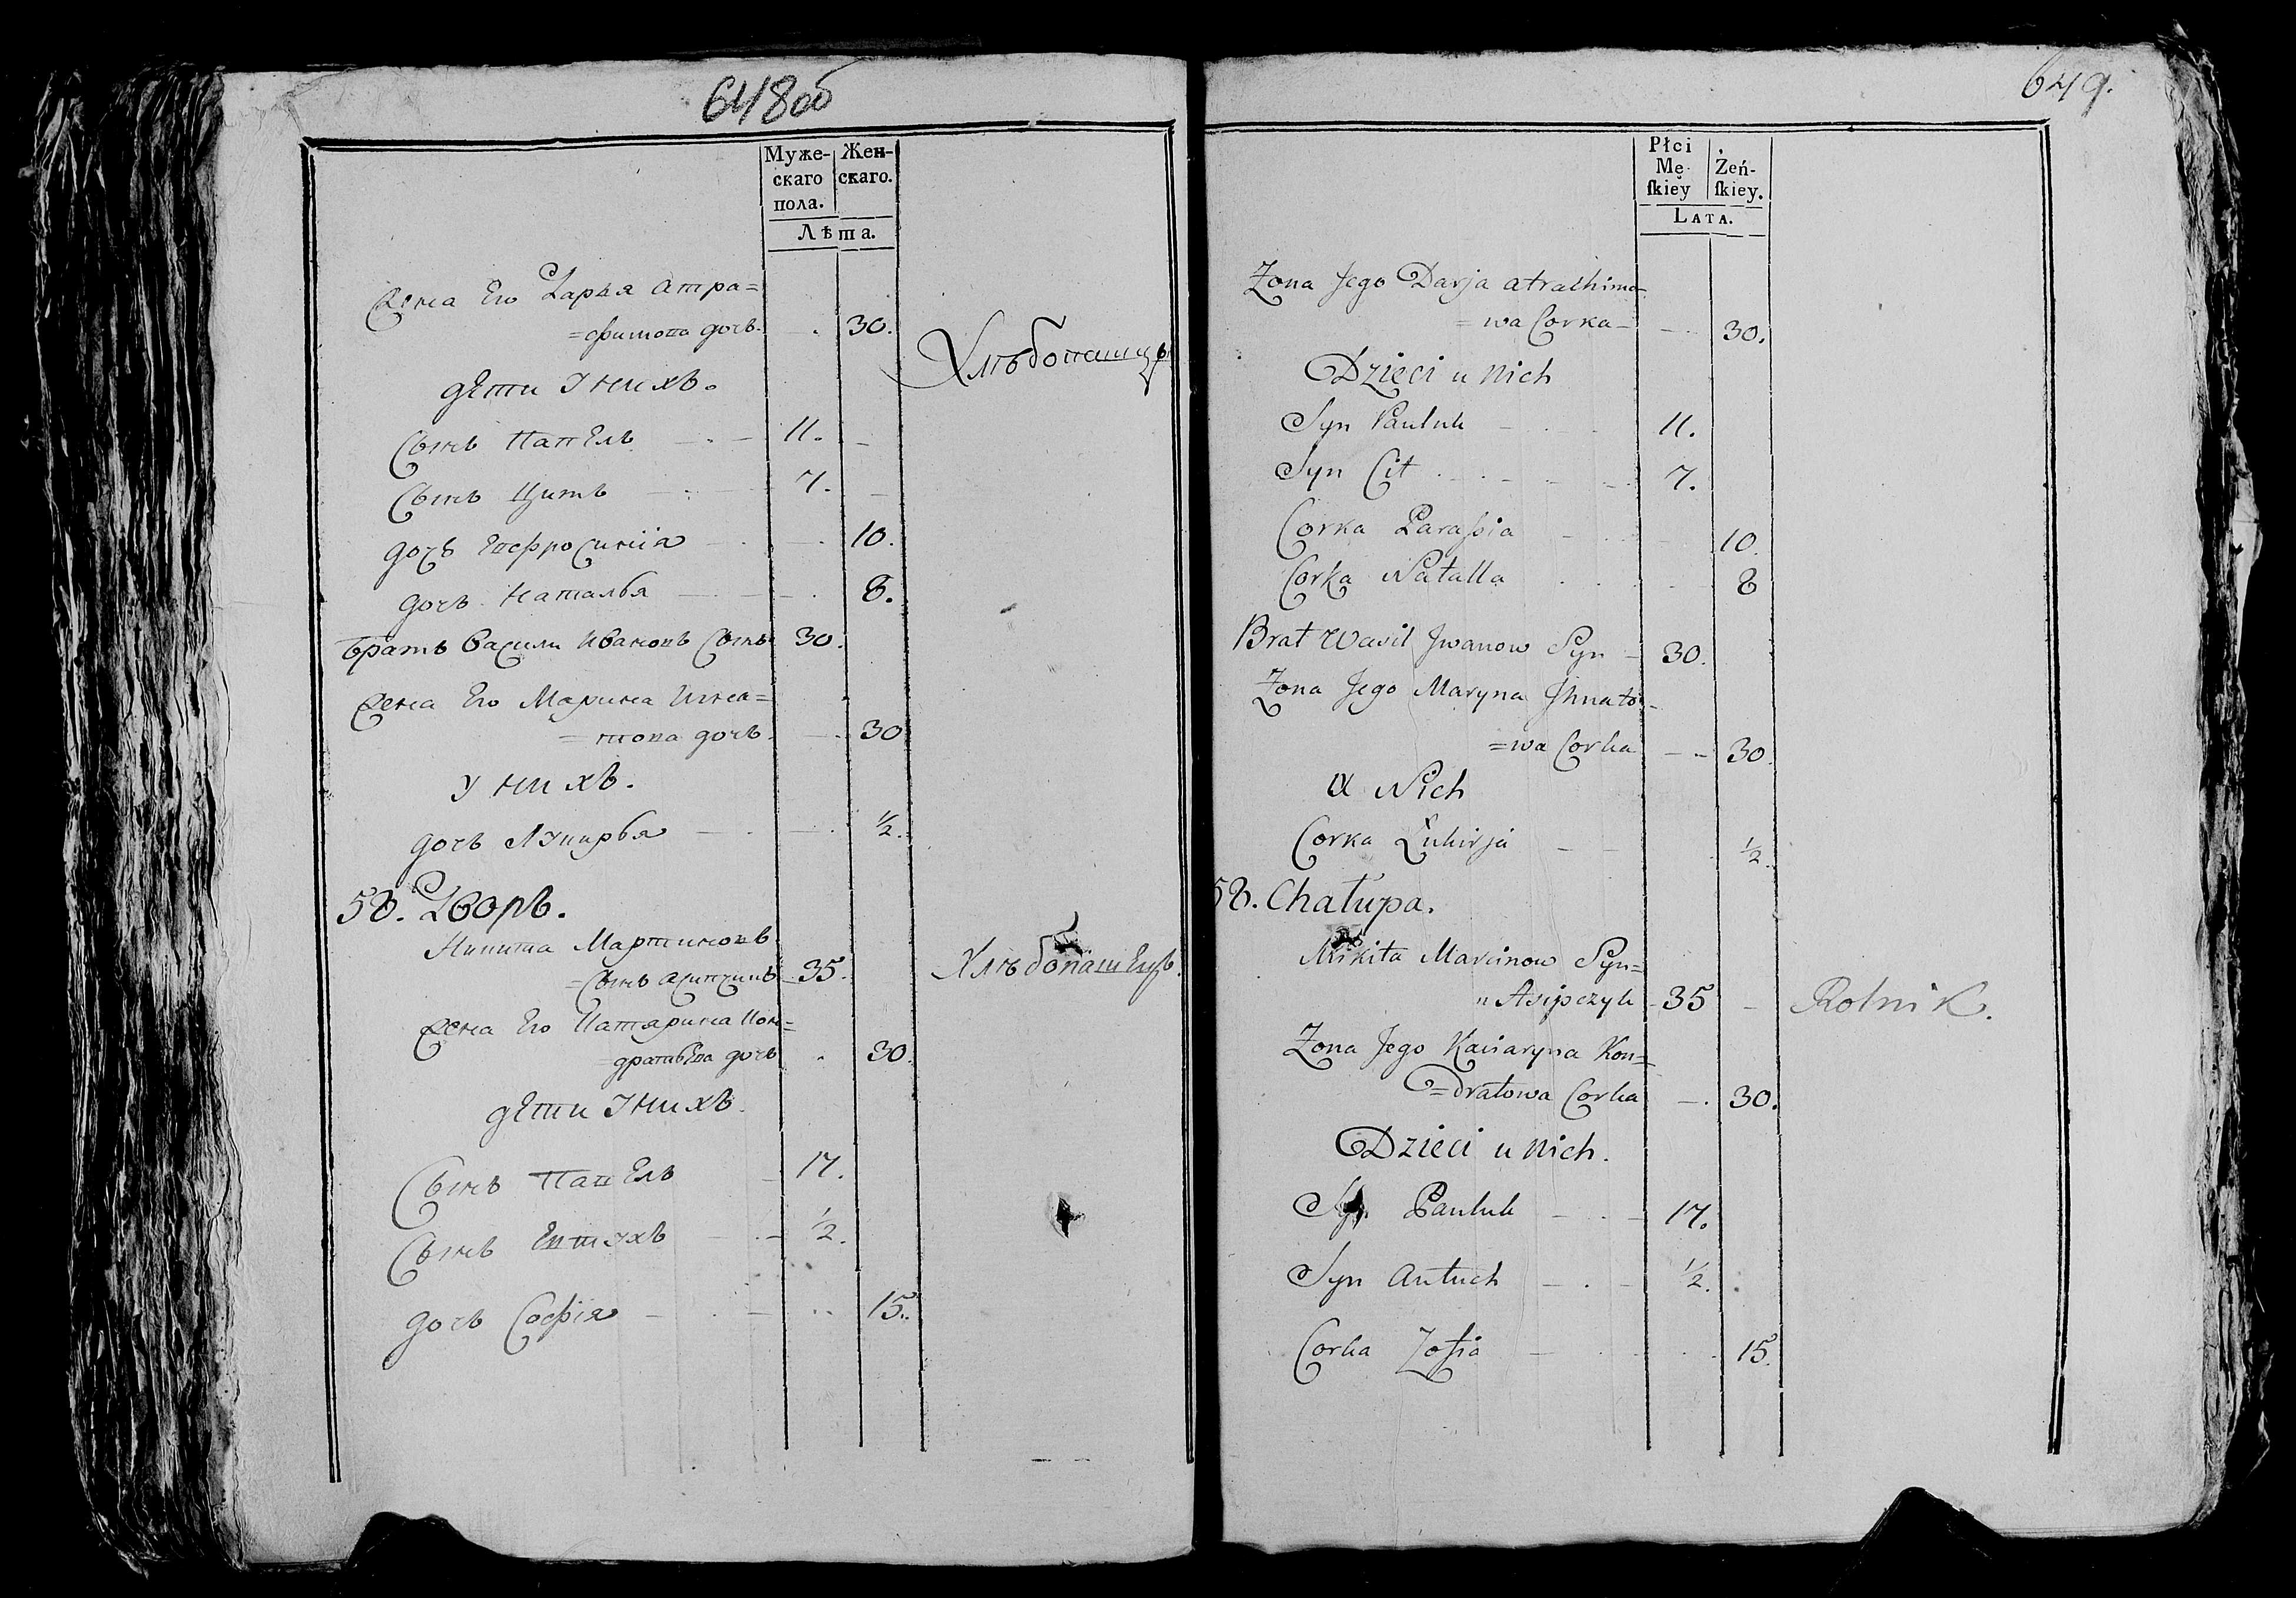 648об
Муже-
скаго
пола.
Жен-
скаго.
Лѣта.
Жена Его Дарья Атра=
=фимова дочь. 30.
Хлѣбопашцы
дѣти У нихъ.
Сынъ Павелъ 11.
Сынъ Цитъ 7.
дочь Евфросинiя 10.
дочь Наталья 8.
братъ Васили Ивановъ Сынъ 30.
Жена Его Марина Игна=
=това дочь. 30
У нихъ.
дочь Лукирья 1/2.
58. Дворъ.
Никита Мартиновъ
=Сынъ Асипчикъ 35.
Хлѣбопашецъ.
Жена Его Катярина Кон=
дратьева дочь 30.
дѣти У нихъ.
Сынъ Павелъ 17.
Сынъ Евтухъ 1/2.
дочь Софiя 15.
649.
Płci
Mę-
ſkiey
Żeń-
ſkiey.
LATA.
Zona Jego Darja atrachimo=
=wa Corka 30.
Dzieci u Nich
Syn Pauluk 11.
Syn Cit 7.
Corka Paraſia 10.
Corka Natalla 8
Brat Wasil Jwanow Syn 30.
Zona Jego Maryna Jhnato=
=wa Corka 30.
U Nich
Corka Łukirja 1/2.
58. Chałupa.
Mikita Marcinow Syn=
"Asipczyk 35 Rolnik.
Zona Jego Kaciaryna Kon=
=dratowa Corka 30.
Dzieci u Nich.
Syn Pauluk 17.
Syn Autuch 1/2.
Corka Zofia 15.